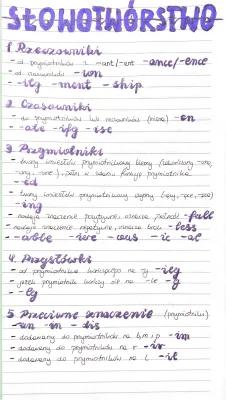 SŁOWOTWÓRSTWO
1. Rzeczowniki
- od przymiotników z -ant/-ent -ance/-ence
- od czasowników -ion
- -ity -ment -ship
2. Czasowniki
- do przymiotników lub rzeczowników -en
- -ate -ify -ise
3. Przymiotniki
- tworzy imiesłów przymiotnikowy bierny
pełni w zdaniu funkcję przymiotnika
-ed
- tworzy imiesłów przymiotnikowy czynny
-ing
- nadaje znaczenie pozytywne, oznacza -full
- nadaje znaczenie negatywne, oznacza brak -less
- -able -ive -ous -ic -al
4. Przysłówki
- od przymiotnika kończącego na -y -ily
- jeżeli przymiotnik kończy się na -le -y
- -ly
5. Przeciwne znaczenie (przymiotniki)
- -un -in - dis
- dodawany do przymiotników na b, m i p -im
- dodawany do przymiotników na r -ir
- dodawany do przymiotników na l -il